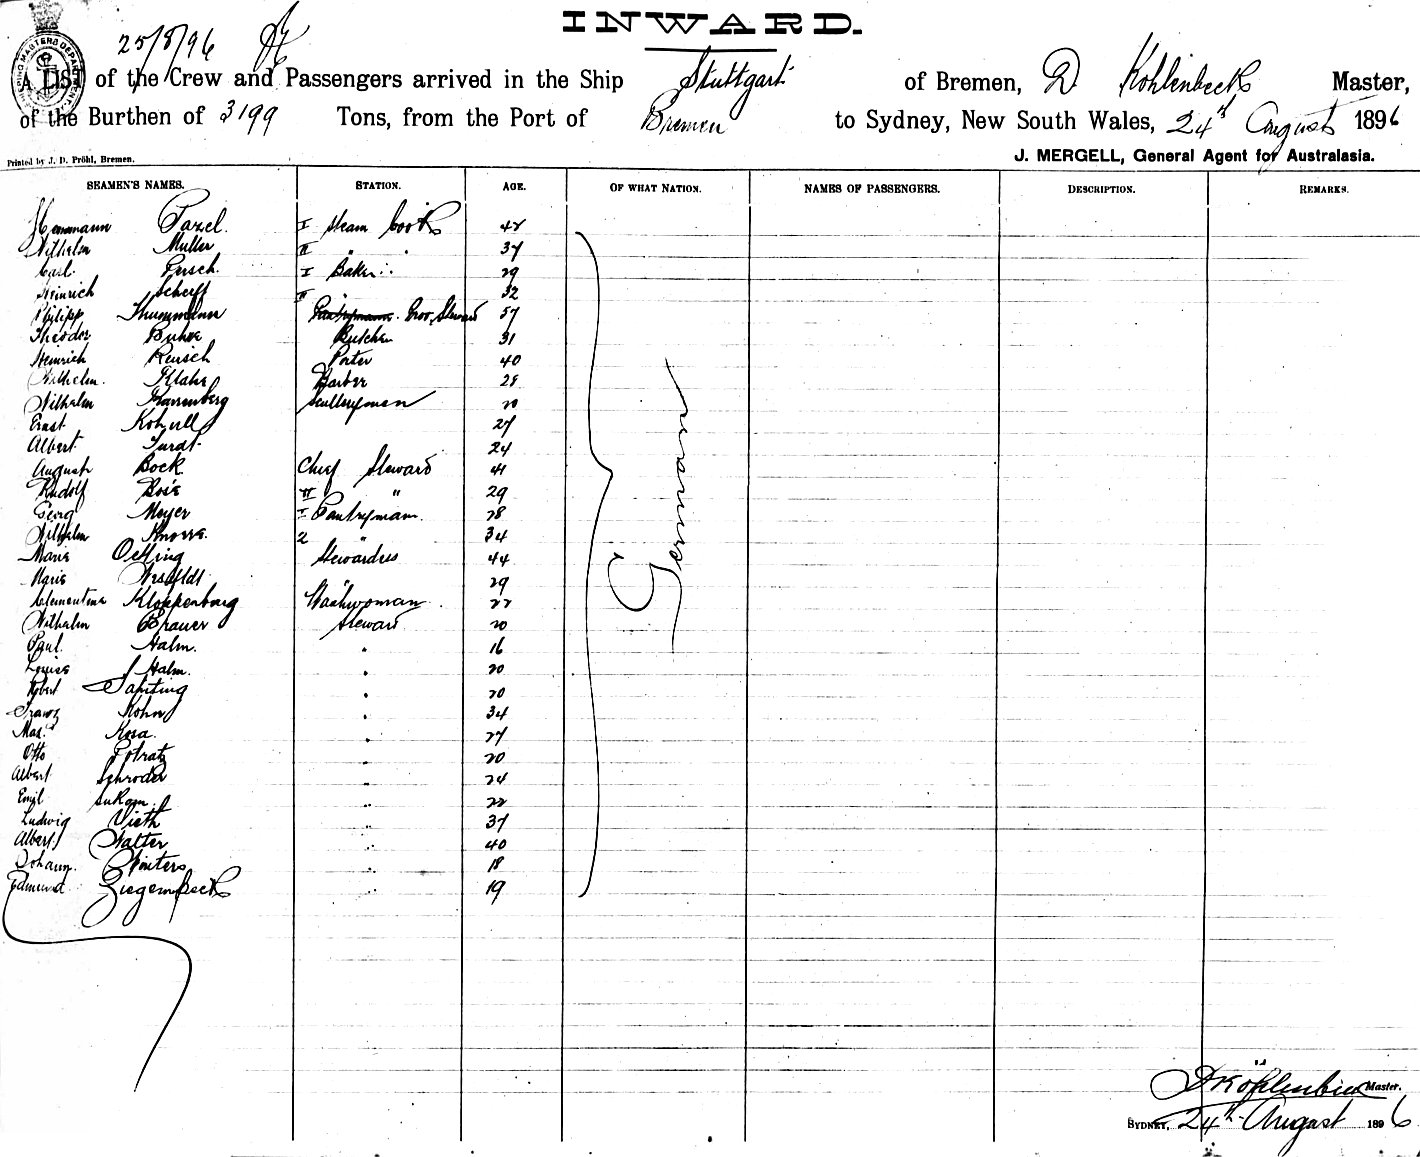 INWARD.
25/8/96
A LIST of the Crew and Passengers arrived in the Ship Stuttgart of Bremen, D Kohlenbeck Master,
of the Burthen of 3199 Tons, from the Port of Bremen to Sydney, New South Wales, 24th August 1896
Printed by J. D. Pröhl, Bremen.
J. MERGELL, General Agent for Australasia.
SEAMEN'S NAMES. STATION. AGE. OF WHAT NATION. NAMES OF PASSENGERS. DESCRIPTION. REMARKS.
Hermann I Steam Cook 42
Wilhelm Muller II " 37
Carl Persch. I Baker 29
Heinrich Scherff II 32
Philipp Thummann Pantrymann. Steward 57
Theodor Buhre Butcher 31
Heinrich Reusch Porter 40
Wilhelm. Klahr Barber 28
Wilhelm Scullerymen 20
Ernst 27
Albert 24
August Bock Chief Steward 41
Rudolf Bose II " 29
Georg Meyer I Pantryman. 28
Wilhelm Knorre. 2 " 34
Marie Oetting Stewardess 44
Marie 29
Clementine Kloppenburg Washwoman 22
Wilhelm Brauer Steward 20
Paul. Halm. " 16
Louis Halm. " 20
Robert " 20
Franz Kohn " 34
Max. Kosa. " 27
Otto Potratz " 20
Albert Schroder " 24
Emil " 22
Ludwig Vieth " 37
Albert " 40
Johann. Winters " 18
Edmund Ziegenbeck " 19
German
D Köhlenbeck Master.
SYDNEY, 24th August 1896